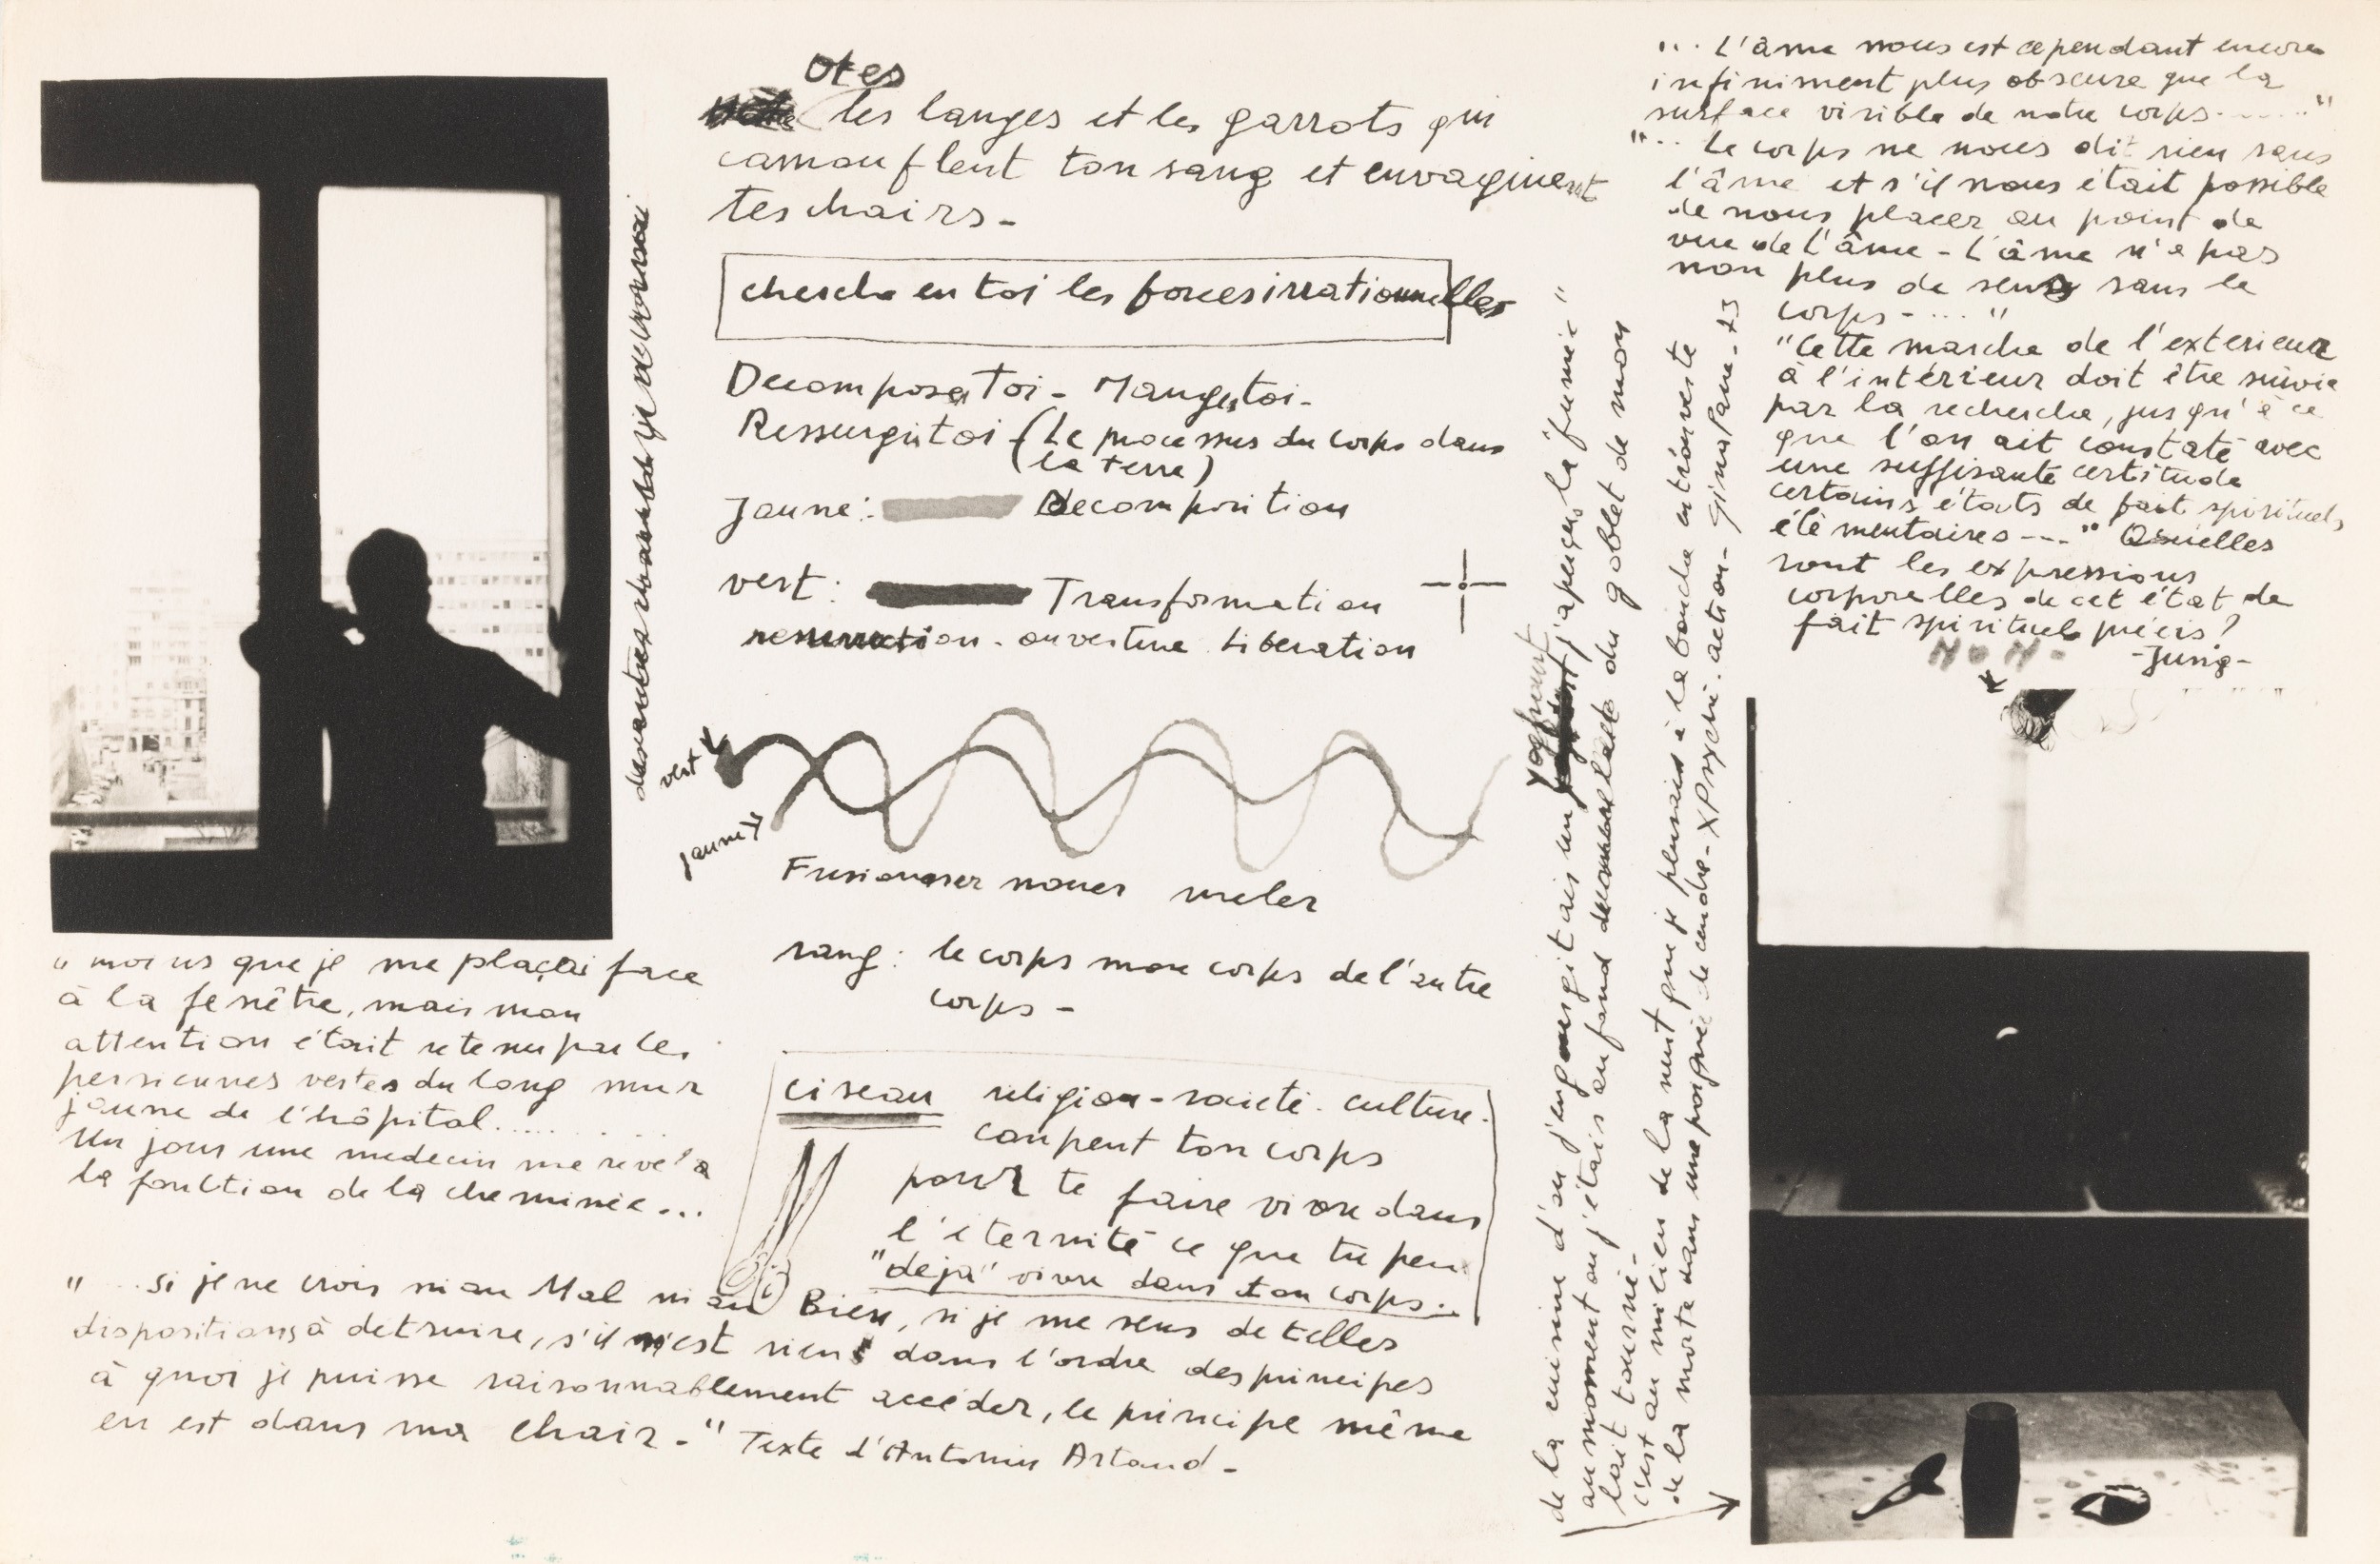 Otes
les langes et les garrots qui
camouflent ton sang et envaginent
tes chairs-
cherche en toi les forces irrationnelles
Decompose Toi - Mange toi-
Ressurgis toi (Le processus du corps dans
la terre)
jaune: Decomposition
vert: Transformation
ressurection - ouverture Liberation
vert
jaune
Fusionner nouer meler
sang: le corps mon corps de l'autre
corps -
ciseau religion - societé. culture.
coupent ton corps
pour te faire vivre dans
l'éternité ce que tu peu
"déjà" vivre dans ton corps..
je ne vois ni
" mois que je me plaçai face
à la fenêtre, mais mon
attention était retenu par les
persiennes vertes du long mur
jaune de l'hôpital.........
Un jour une medecin me révéla
la fonction de la cheminée...
"...si je ne crois ni au Mal ni au Bien, si je me sens de telles
dispositions à detruire, s'il n'est rien dans l'ordre des principes
à quoi je puisse raisonnablement accéder, le principe même
en est dans ma chair-" Texte d'Antonin Artaud-
de la cuisine d'où j'engurgitais un yaghourt j'aperçus la fumée"
au moment où j'étais au fond du goblet de mon
lait tourné-
c'est au milieu de la nuit que je pensais à la bouche entrouverte
de la morte dans une poignée de cendre- XPsyché. action- gina Pane-73
"... L'âme nous est cependant encore
infiniment plus obscure que la
surface visible de notre corps......"
"... Le corps ne nous dit rien sans
l'âme et s'il nous était possible
de nous placer au point de
vue de l'âme - L'âme n'a pas
non plus de sens sans le
corps-...."
"Cette marche de l'exterieur
à l'intérieur doit être suivie
par la recherche, jusqu'à ce
que l'on ait constaté avec
une suffisante certitude
certains états de fait spirituels
élémentaires---" Quelles
sont les expressions
corporelles de cet état de
fait spirituel précis?
-Jung-